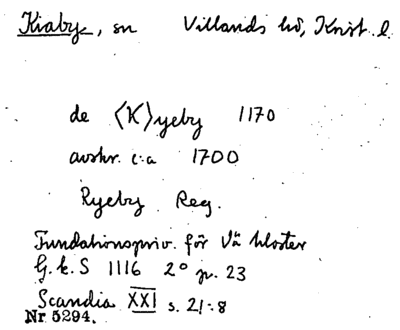 Kiaby, sn Villands hd, Krist. l.
de ⟨K⟩yeby 1170
avskr. c:a 1700
Ryeby Reg.
Fundationspriv. för Vä kloster
G.k.S 1116 2° p. 23
Scandia XXI s. 21:8
Nr 5294.